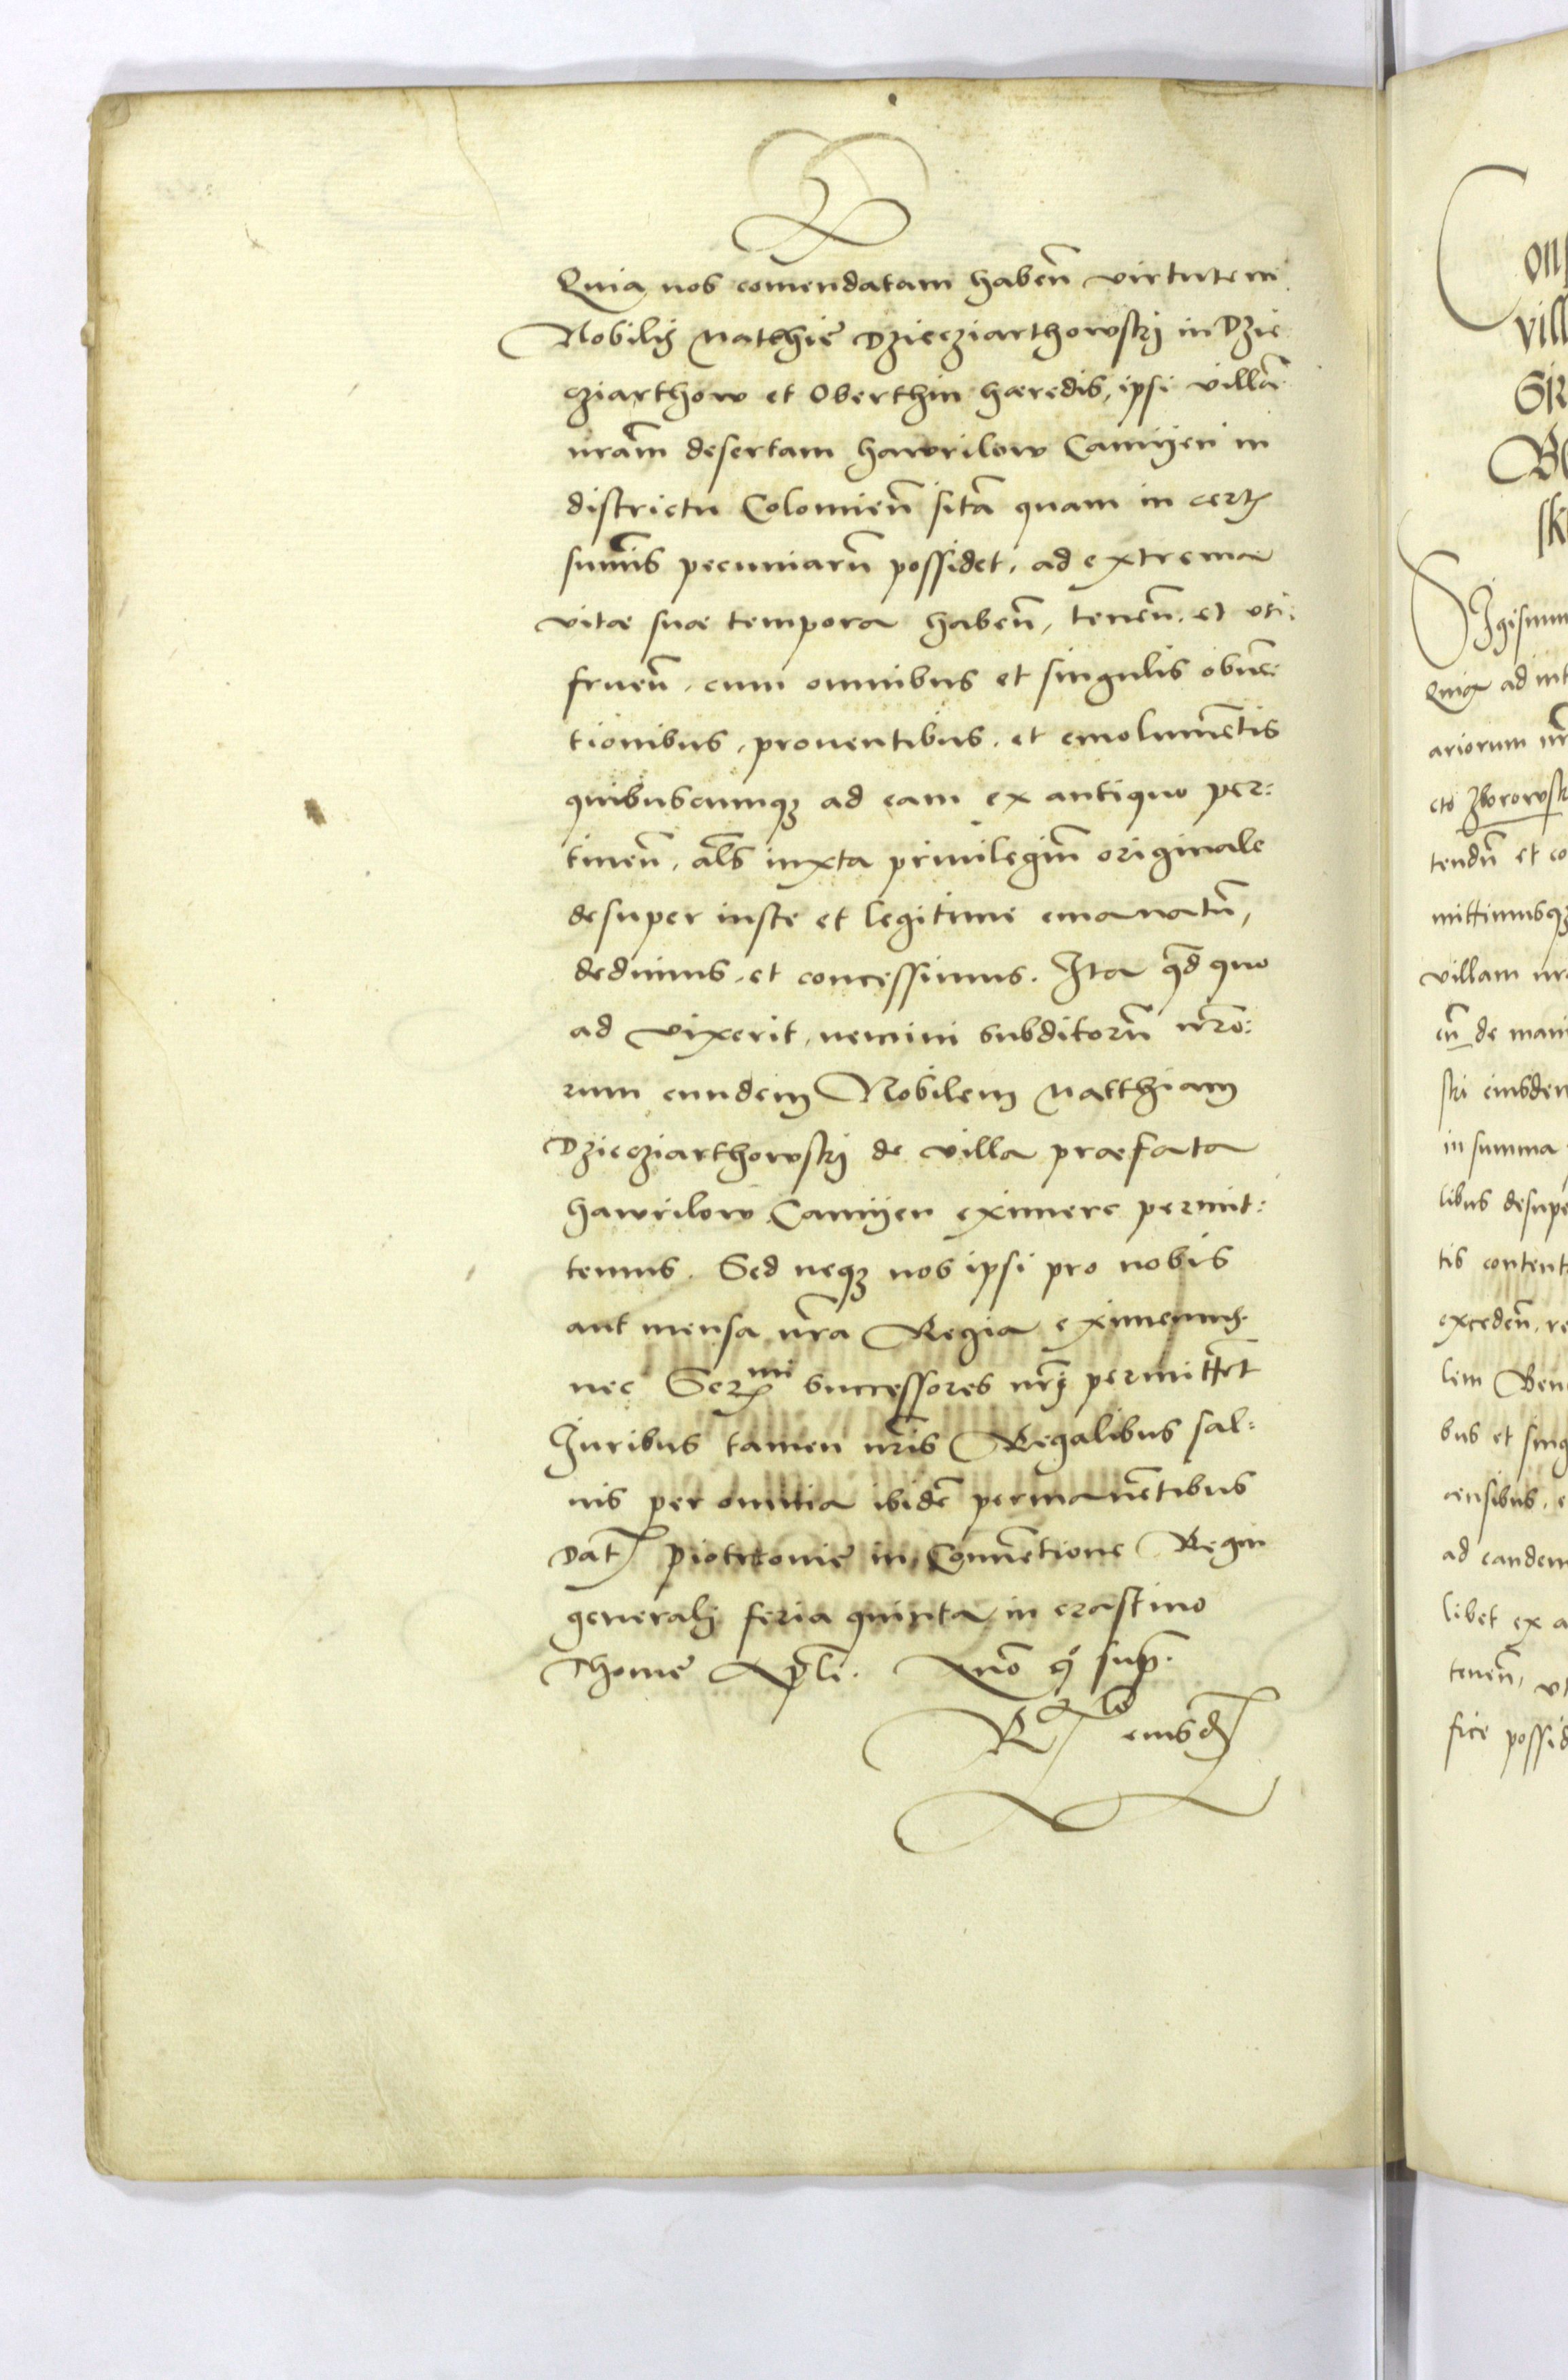 Quia nos comendatam habeñ virtutem
Nobilis Matthie Dziecziarthowskj in Dzie
cziarthow et Oberthin hæredis, ipsi villã
nrãm desertam Hawrilow Camijen in
districtu Colomieñ sitã quam in certis
sum̃is pecuniarũ possidet, ad extrema
vitæ suæ tempora habeñ, teneñ, et uti
frueñ, cum omnibus et singulis obuẽ:
tionibus, prouentibus, et emolumẽtis
quibuscumqȝ ad eam ex antiquo per:
tineñ, als̃ iuxta priuilegiũ originale
desuper iuste et legitime emanatũ,
dedimus, et concessimus. Ita qd̃ quo
ad vixerit, nemini subditorũ nrõ:
rum eundem Nobilem Matthiam
Dziecziarthowskj de villa præfata
Hawrilow Camijen eximere permit:
temus. Sed neqȝ nos ipsi pro nobis
aut mensa nr̃a Regia eximemus,
nec Sermi successores nrĩ permittẽt
Juribus tamen nrĩs Regalibus sal:
uis per omnia ibidẽ permanẽtibus
Dat Piotrcouie in Conuẽtione Regni
generalj feria quinta in crastino
Thome Apli. Anõ qº sup̃.
Relo eiusd
on
vill
Be
sk
Sigismu
Quia ad int
ariorum nr̃
cto Zborowsk
tendũ et co
mittimusqȝ
villam nr
cũ de mani
ski eiusdem
in summa
libus desupe
tis content
excedeñ, re
lem Ben
bus et sing
censibus, e
ad eandem
libet ex a
teneñ, vt
fice possid